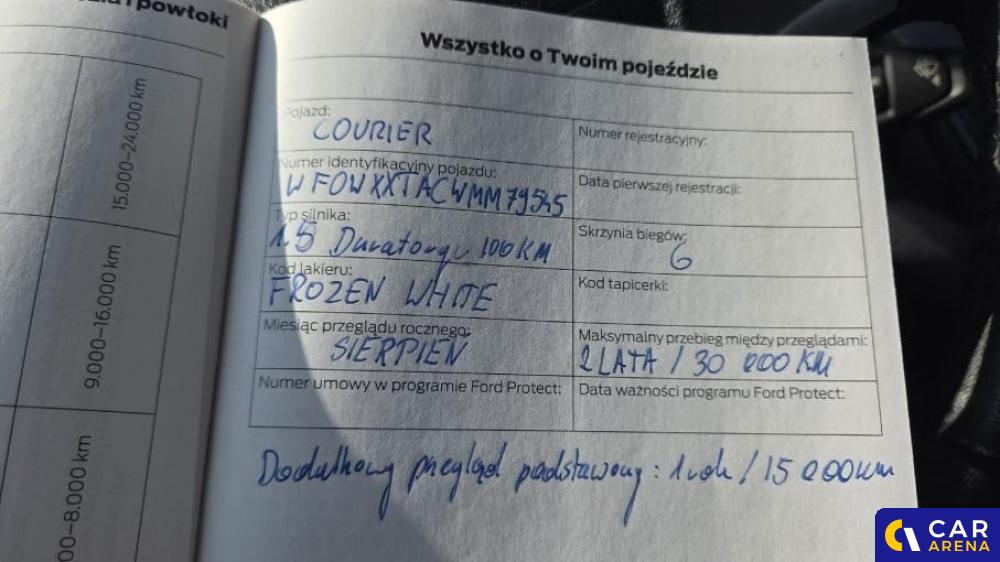 i powłoki
15.000–24.000 km
9.000–16.000 km
00–8.000 km
Wszystko o Twoim pojeździe
Pojazd:
COURIER
Numer rejestracyjny:
Numer identyfikacyjny pojazdu:
WF0WXXTACWMM79545
Data pierwszej rejestracji:
Typ silnika:
1.5 Duratorq 100KM
Skrzynia biegów:
6
Kod lakieru:
FROZEN WHITE
Kod tapicerki:
Miesiąc przeglądu rocznego:
SIERPIEŃ
Maksymalny przebieg między przeglądami:
2 LATA / 30 000 KM
Numer umowy w programie Ford Protect:
Data ważności programu Ford Protect:
Dodatkowy przegląd podstawowy: 1 rok / 15 000 km
CAR
ARENA